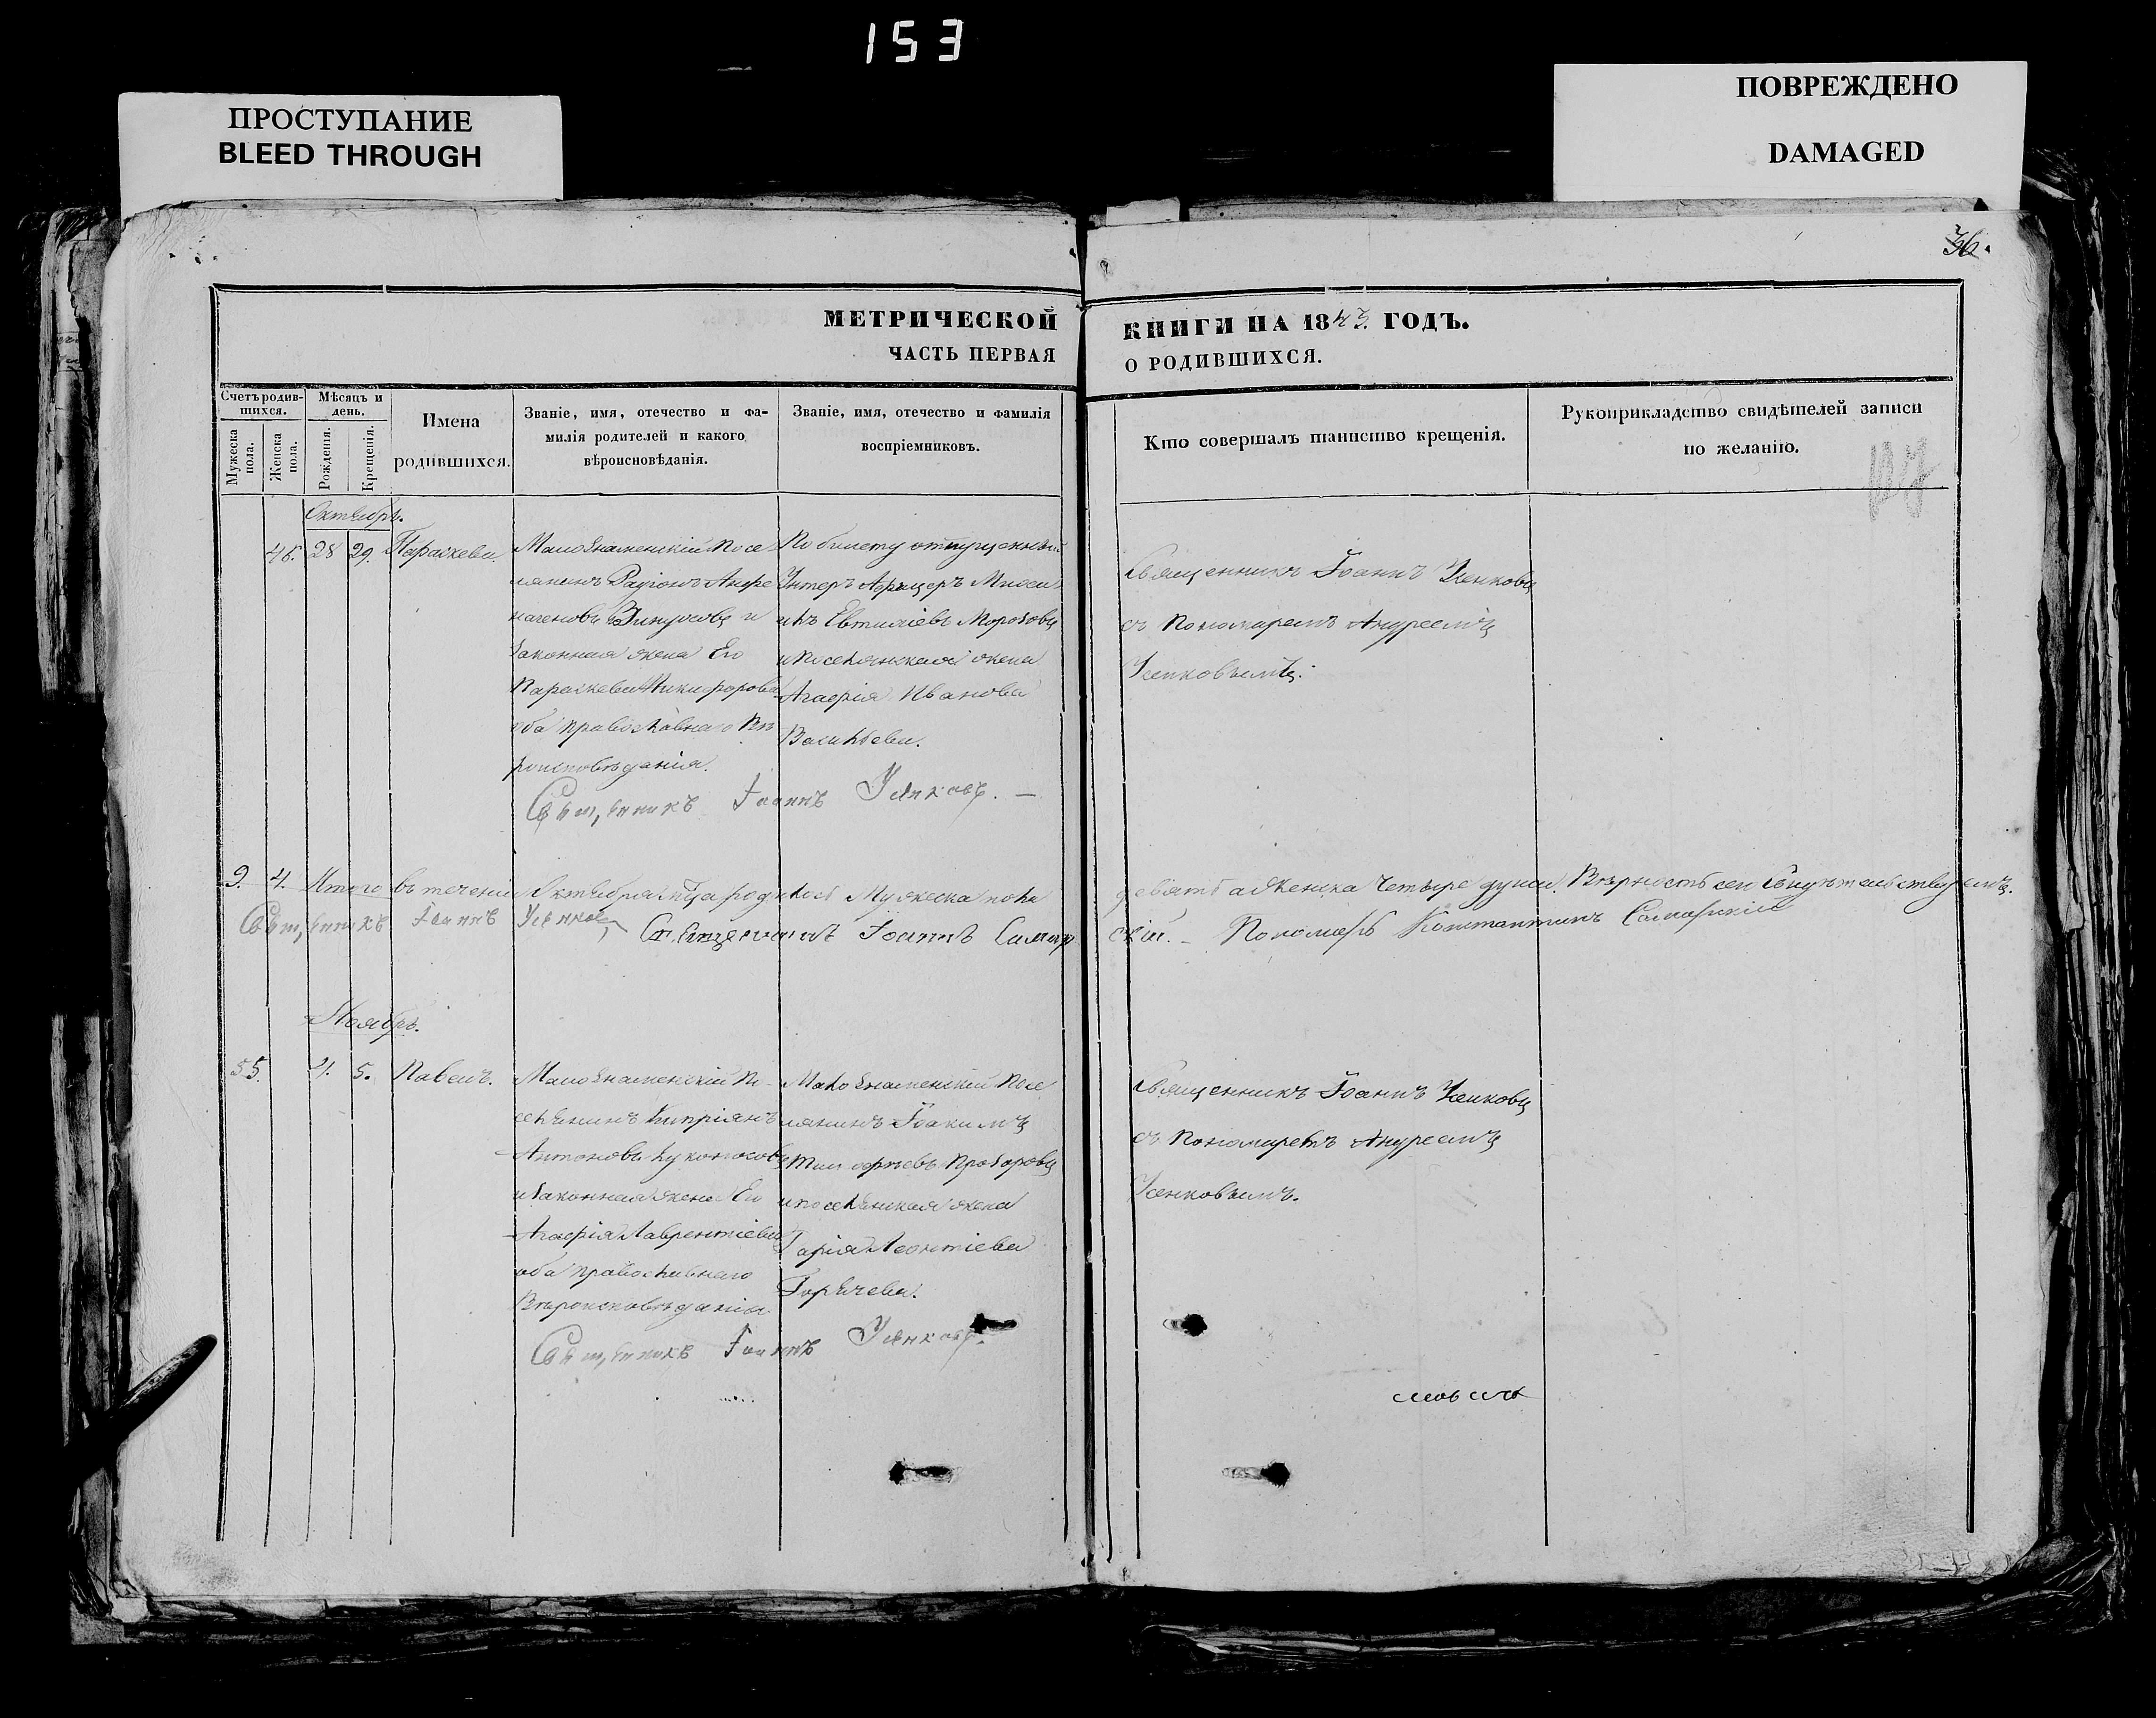 153
ПРОСТУПАНИЕ
BLEED THROUGH
ПОВРЕЖДЕНО
DAMAGED
36.
МЕТРИЧЕСКОЙ КНИГИ НА 1843 ГОДЪ.
ЧАСТЬ ПЕРВАЯ О РОДИВШИХСЯ.
Счетъ родив-
шихся.
Мужеска пола.
Женска пола.
Мѣсяцъ и
день.
Рожденія.
Крещенія.
Имена
родившихся.
Званіе, имя, отечество и фа-
милія родителей и какого
вѣроисповѣданія.
Званіе, имя, отечество и фамилія
воспріемниковъ.
Кто совершалъ таинство крещенія.
Рукоприкладство свидѣтелей записи
по желанію.
Октябрь.
46. 28 29. Параскева.
Малознаменскій Посе
лянинъ Радіонъ
и
законная жена Его
Параскева Никифорова
оба православнаго Вѣ
роисповѣданія.
По билету отпущенный
Унтеръ Афицеръ
Евтихіевъ Морозовъ
и поселянская жена
Агафія Иванова
Васильева.
Священникъ Іоаннъ Усенковъ
съ Пономаремъ Андреемъ
Усенковымъ.
Священникъ Іоаннъ Усенковъ. —
9. 4. Итого въ теченіи Октября м̃ца родилось Мужеска пола девять а Женска четыре души. Вѣрность сего свидѣтельствуемъ.
Священникъ Іоаннъ Усенковъ Священникъ Іоаннъ Самар скій. – Пономарь Константинъ Самарскій
Ноябрь.
55. 4. 5. Павелъ.
Малознаменскій По-
селянинъ Кипріянъ
Антоновъ
и законная жена Его
Агафія Лаврентіева
оба православнаго
Вѣроисповѣданія
Малознаменскій Посе
лянинъ Іоакимъ
Тимофѣевъ Прозоровъ
и поселянская жена
Дарія Леонтіева
Горячева.
Священникъ Іоаннъ Усенковъ
съ Пономаремъ Андреемъ
Усенковымъ.
Священникъ Іоаннъ Усенковъ.